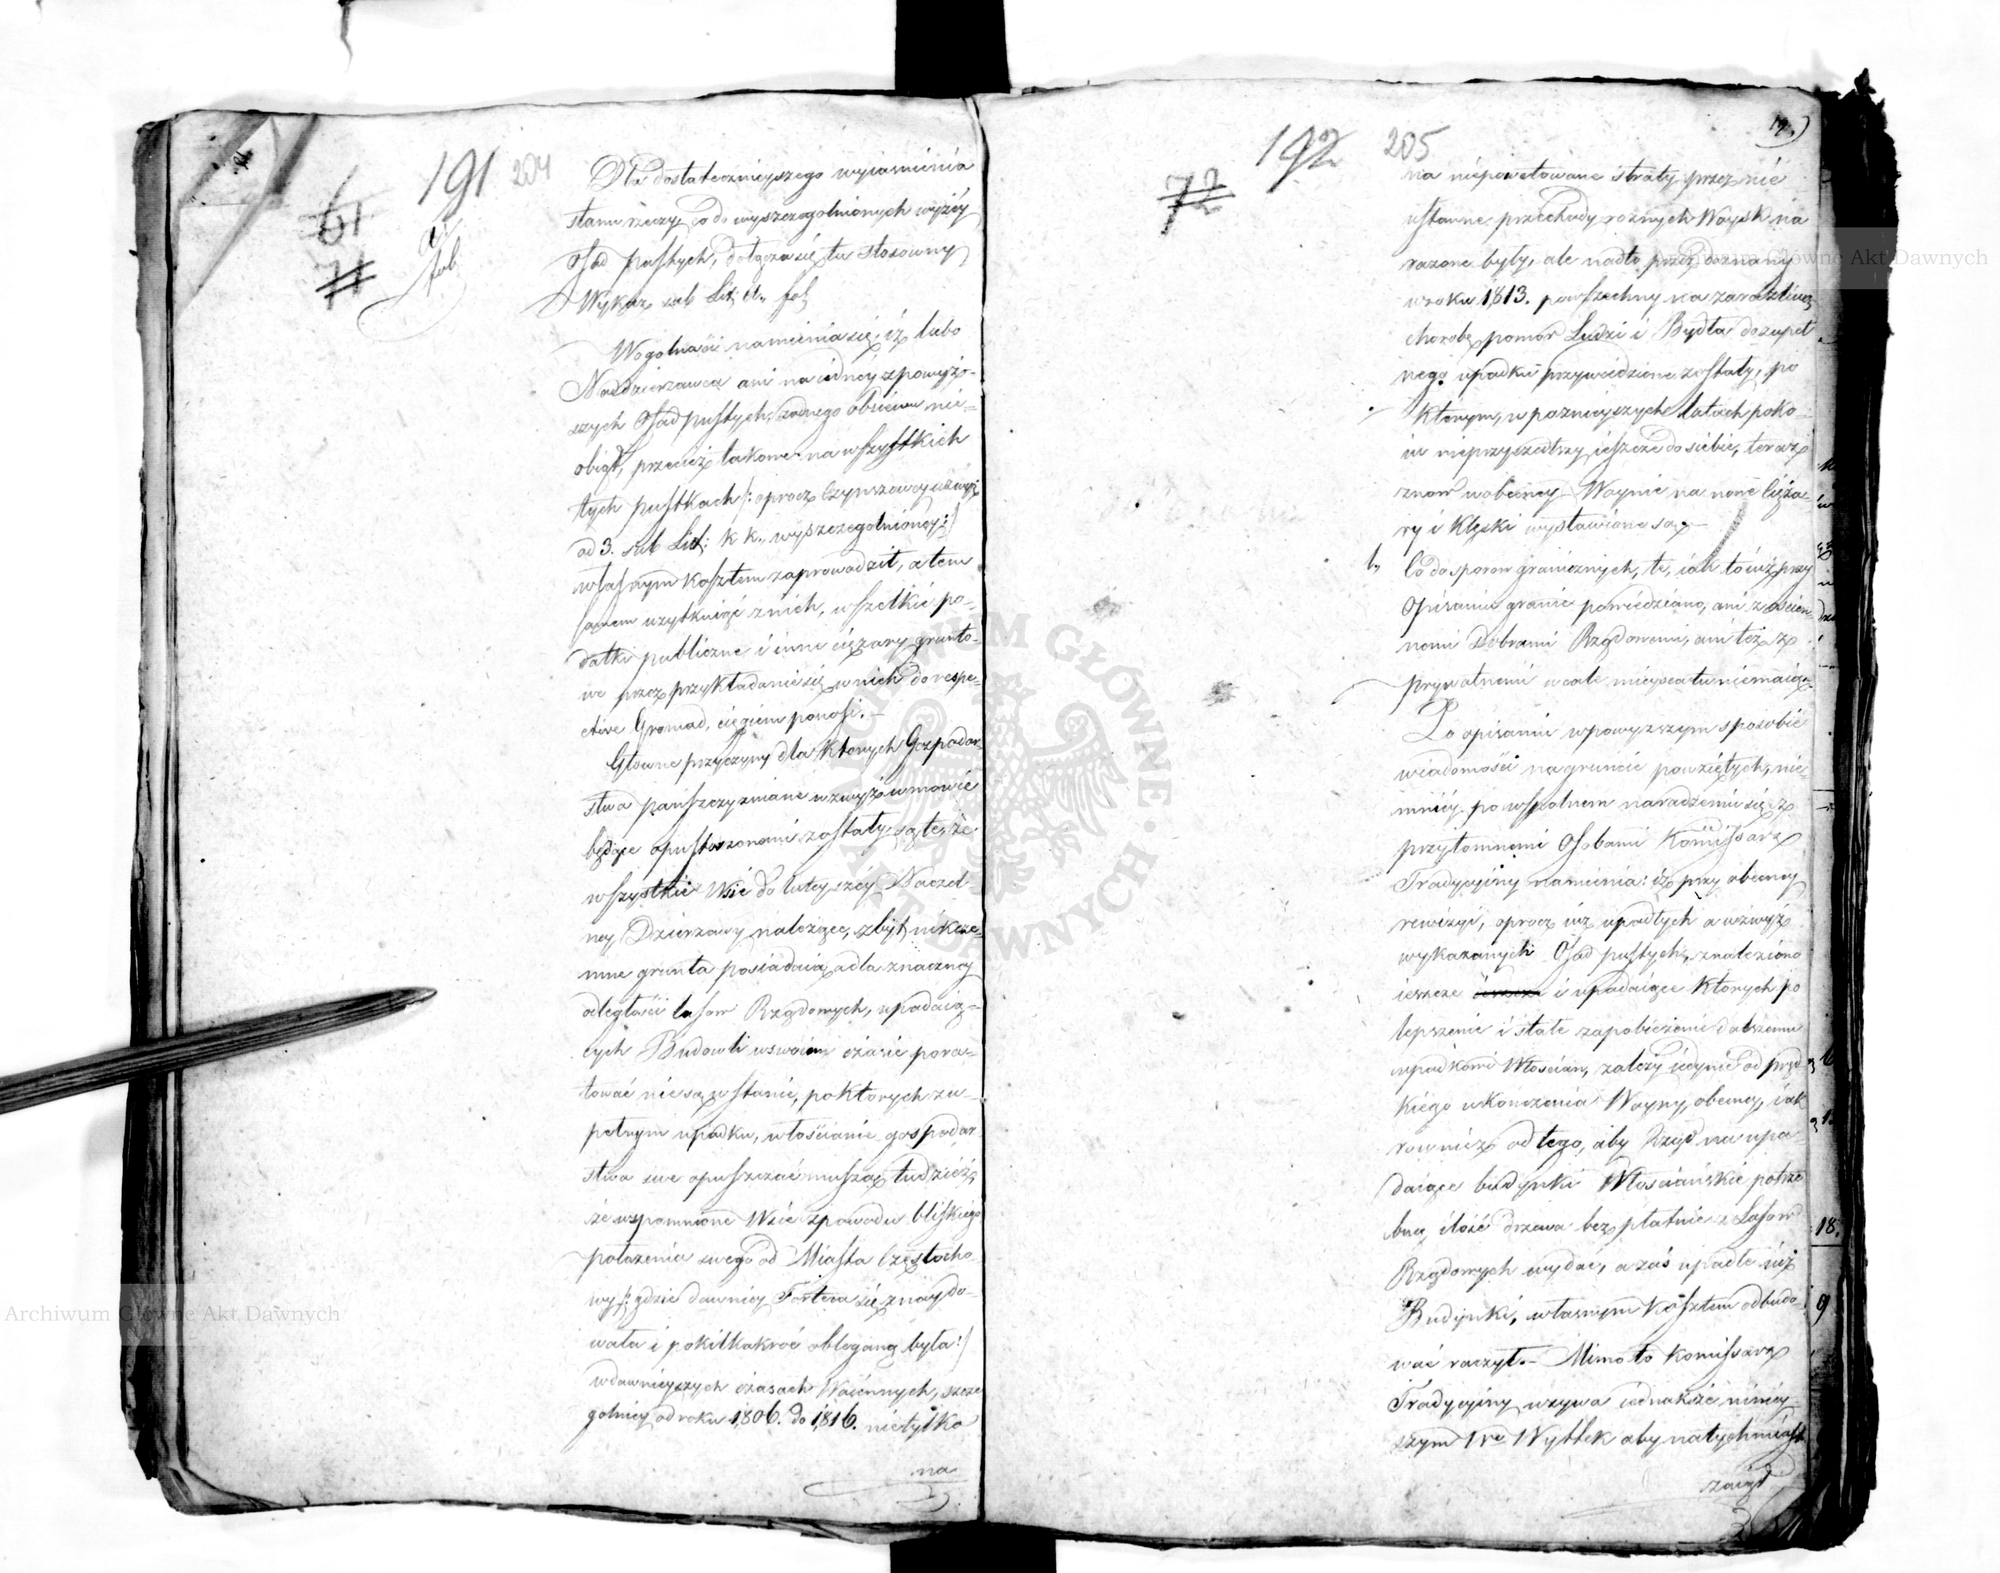 191
204
Dla dostatecznieyszego wyiasnienia
stanu rzeczy co do wyszczegolnionych wyżey
Osad pustych, dołącza się tu stosowny
Wykaz sub Lit: fol
Wogolności namienia się, iż lubo
Naddzierzawca ani na iedney z powyż-
szych Osad pustych, żadnego obsiewu nie-
obiął, przecież takowe na wszystkich
tych pustkach /: oprocz Czynszowey
ad 3. sub Lit: k k. wyszczegolnioney :/
własnym kosztem zaprowadził, a tem
samem użytkuiąc z nich, wszelkie po-
datki publiczne i inne ciężary grunto-
we przez przykładanie się w nich do respe-
ctive Gromad, ciągiem ponosi.-
Głowne przyczyny dla ktorych Gospodar-
stwa pańszczyzniane wzwyż w mowie
będące opustoszonemi zostały są te, że
wszystkie Wsie do tuteyszey Naczel
ney Dzierzawy należące, zbyt nikcze-
mne grunta posiadaią, a dla znaczney
odległości lasow Rządowych, upadaią-
cych Budowli w swoim czasie pora-
tować nie są w stanie, po ktorych zu-
pełnym upadku, włościanie gospodar-
stwa swe opuszczać muszą, tudzież,
że wspomnione Wsie z powodu bliskiego
położenia swego od Miasta Częstocho-
wy /: gdzie dawniey Forteca się znaydo-
wała i pokilkakroć oblegana była :/
w dawnieyszych czasach Woiennych, szcze
golniey od roku 1806. do 1816. nietylko
na
72
192
205
na niepowetowane straty przez nie
ustanne przechody roznych Woysk na
razone były, ale nadto przez doznany
w roku 1813. powszechny na zaraźliwą
chorobę pomor Ludzi i Bydła do zupeł
nego upadku przywiedzione zostały, po
ktorym, w poznieyszych latach poko-
iu nieprzyszedłszy ieszcze do siebie, teraz
znow w obecney Woynie na nowe cięża-
ry i klęski wystawione są.-
b, Co do sporow granicznych, te, iak to iuż przy
Opisaniu granic powiedziano, ani z oscien-
nemi Dobrami Rządowemi, ani też z
prywatnemi wcale mieysca tu niemaią.
Po opisaniu w powyzszym sposobie
wiadomości na gruncie powziętych, nie-
mniey po wspolnem naradzeniu się z
przytomnemi Osobami Kommissarz
Tradycyiny namienia: iż przy obecney
rewizyi, oprocz iuż upadłych a wzwyż
wykazanych Osad pustych, znaleziono
ieszcze i upadaiące ktorych po
lepszenie i stałe zapobieżenie dalszemu
upadkowi Włościan, zależy iedynie od pręd
kiego ukonczenia Woyny obecney, iak
rownież od tego, aby Rząd na upa-
daiące budynki Włościańskie potrze
bną ilość drzewa bezpłatnie z Lasow
Rządowych wydać, a zaś upadłe iuż
Budynki, własnym kosztem odbudo-
wać raczył.- Mimo to Kommissarz
Tradycyiny wzywa iednakże niniey-
szym Wo Wyttek aby natychmiast
zaiął